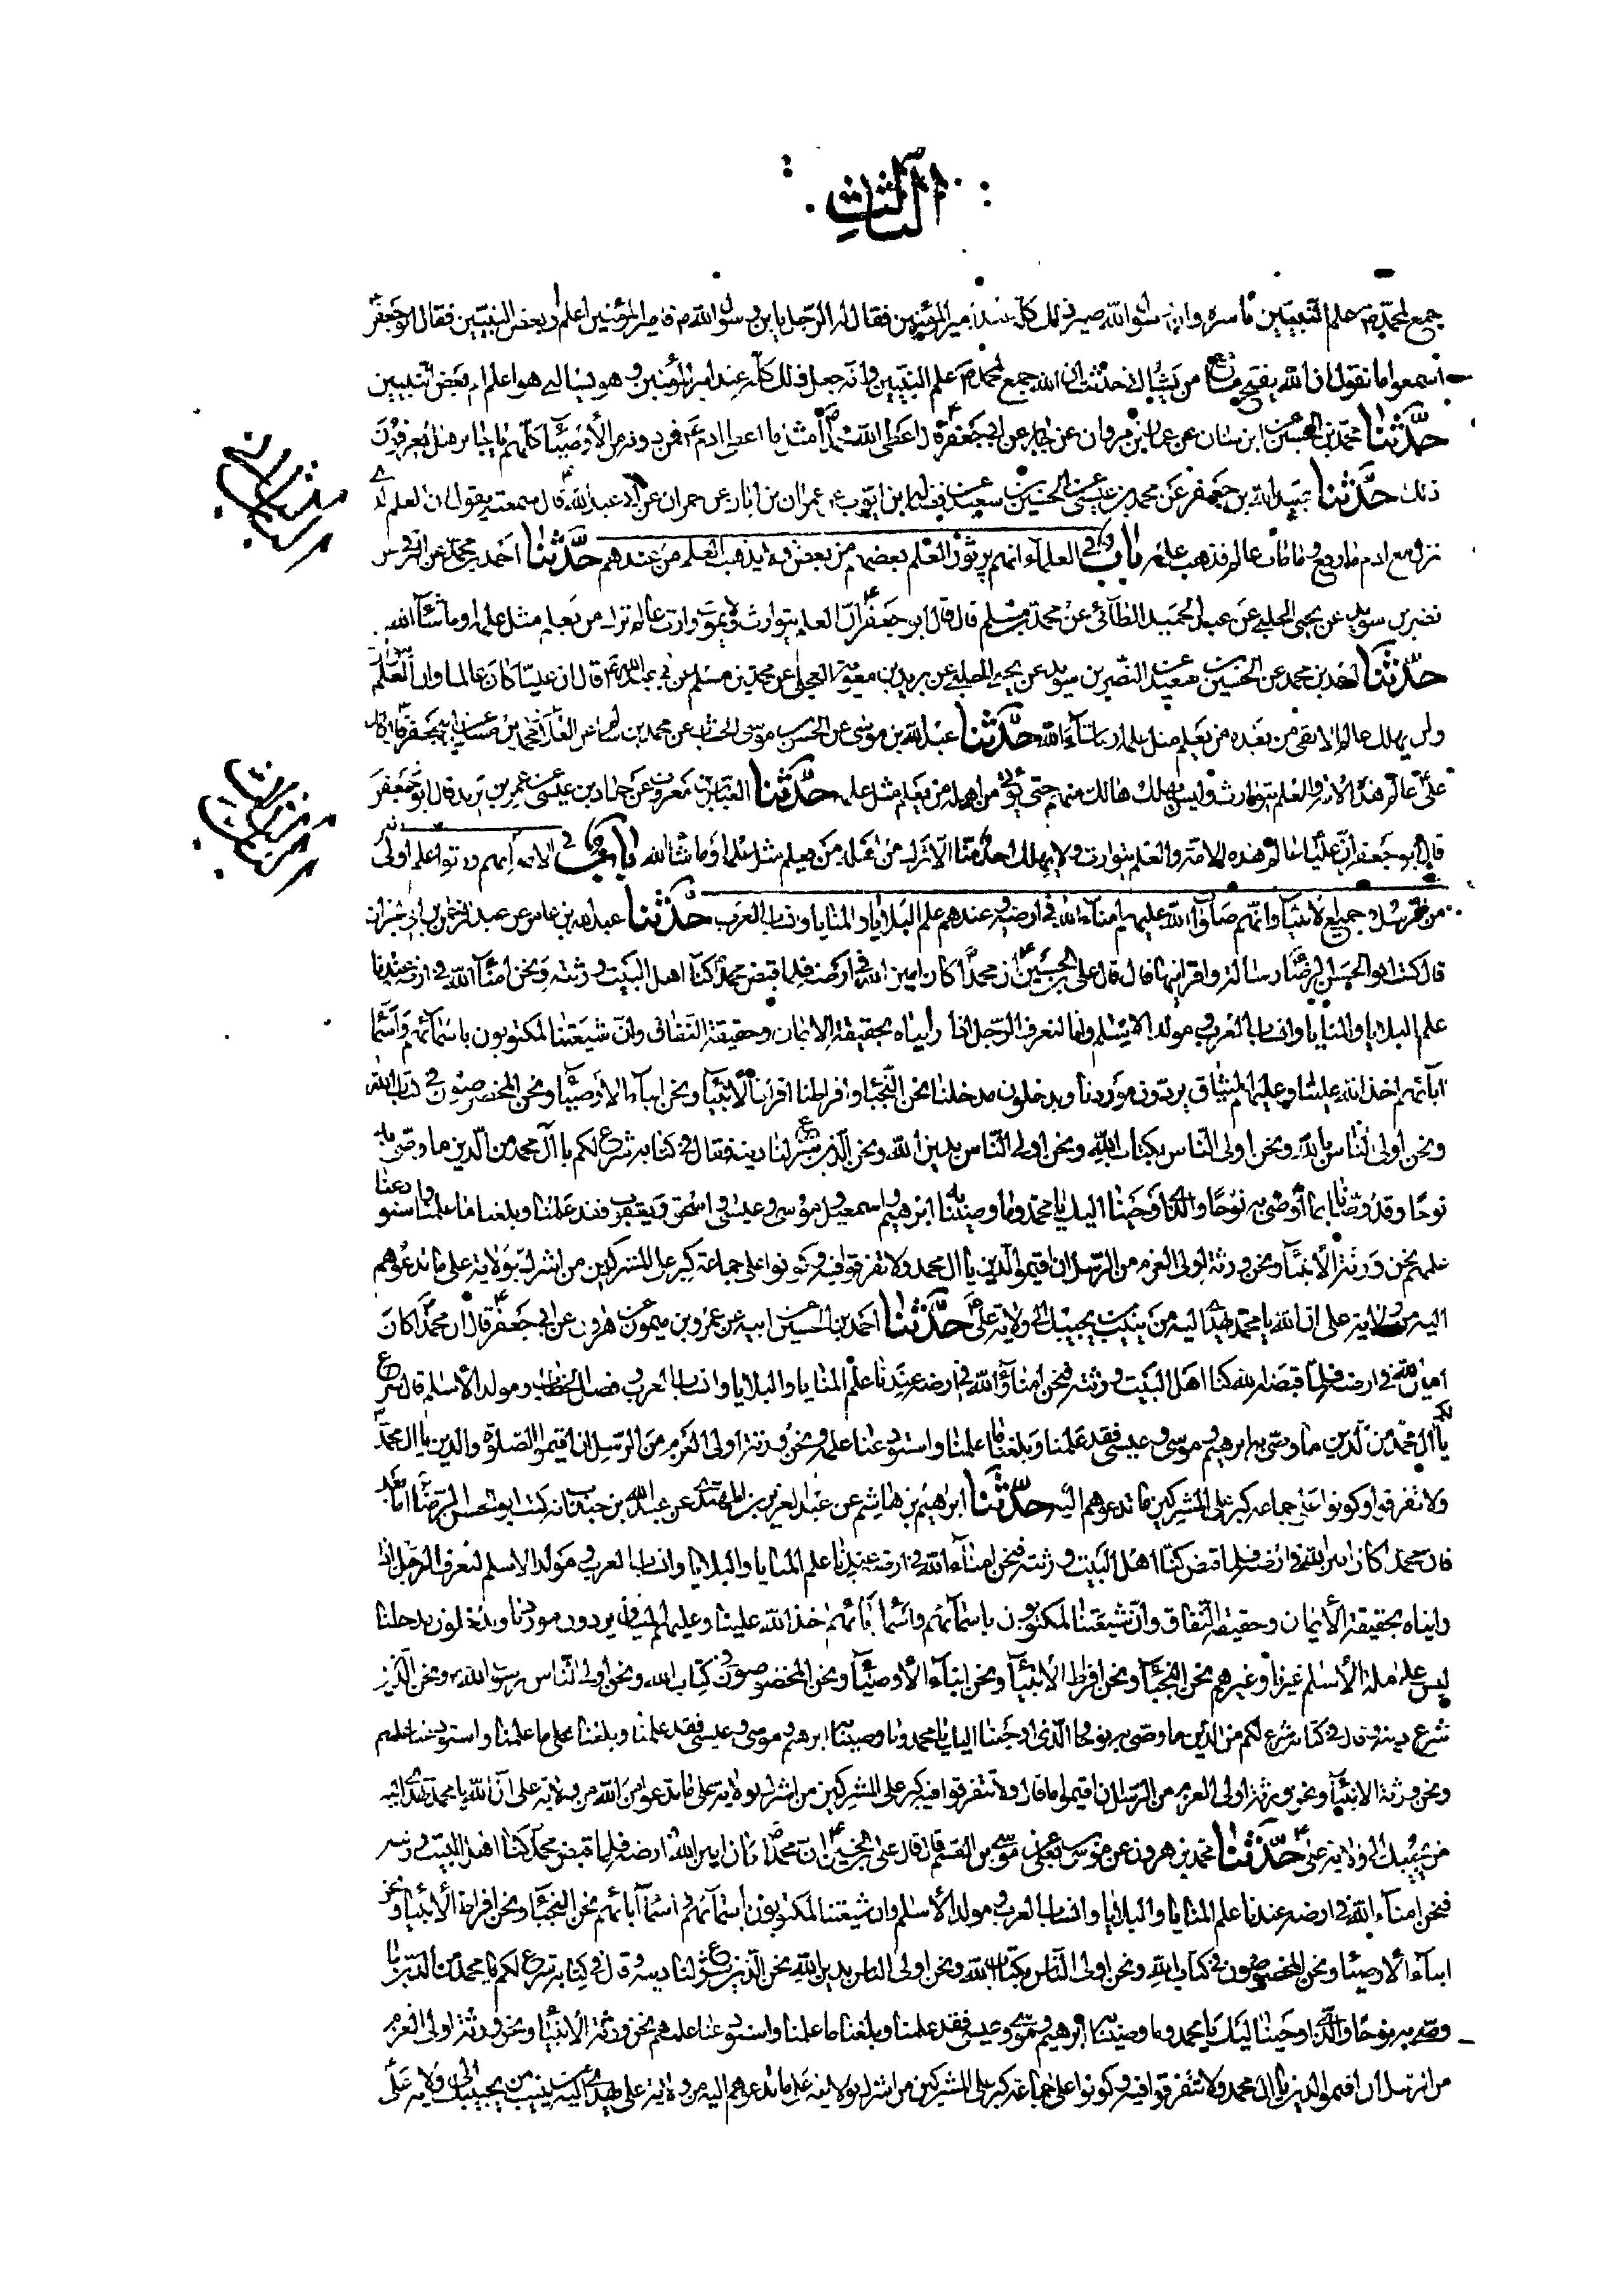 الثالث
جمع لمحمد ص علم النبيين باسره وان رسول الله صير ذلك كله عند امير المؤمنين فقال له الرجل يا بن رسول الله ص فامير المؤمنين اعلم او بعض النبيين فقال ابو جعفر ع
اسمعوا ما نقول ان الله يفتح مسامع من يشاء انى حدثته ان الله جمع لمحمد ص علم النبيين وانه جعل ذلك كله عند امير المؤمنين وهو يسالنى هو اعلم ام بعض النبيين
حدثنا محمد بن الحسين عن ابن سنان عن عمار بن مروان عن جابر عن ابى جعفر ع قال اعطى الله محمدا ص مثل ما اعطى ادم ع فمن دونه من الأوصياء كلهم يا جابر هل يعرفون
ذلك حدثنا عبد الله بن جعفر عن محمد بن عيسى عن الحسين بن سعيد عن فضالة بن ايوب عن عمران بن ابان عن حمران عن ابى عبد الله ع قال سمعته يقول ان العلم الذى
نزل مع ادم ما رفع وما مات عالم فذهب علمه باب فى العلماء انهم يرثون العلم بعضهم من بعض ولا يذهب العلم من عندهم حدثنا احمد بن محمد عن
نضر بن سويد عن يحيى الحلبى عن عبد الحميد الطائى عن محمد بن مسلم قال قال ابو جعفر ع ان العلم يتوارث ولا يموت عالم الا ترك من يعلم مثل علمه او ما شاء الله
حدثنا احمد بن محمد عن الحسين بن سعيد عن النضر بن سويد عن يحيى الحلبى عن بريد بن معوية العجلى عن محمد بن مسلم عن ابى عبد الله ع قال ان عليا كان عالما وان العلم يتوارث
ولن يهلك عالم الا بقى من بعده من يعلم مثل علمه او ما شاء الله حدثنا عبد الله بن موسى عن الحسن بن موسى الخشاب عن محمد بن
على ع عالم هذه الامة والعلم يتوارث وليس يهلك هالك منهم حتى يؤتى من اهله من يعلم مثل علمه حدثنا العباس بن معروف عن حماد بن عيسى عن عمر بن يزيد قال ابو جعفر
قال ابو جعفر ان عليا ع عالم هذه الامة والعلم يتوارث ولا يهلك احد منا الا ترك من اهله من يعلم مثل علمه او ما شاء الله باب فى الائمة انهم ورثوا علم اولى
العزم من الرسل وجميع الانبياء وانهم صلوات الله عليهم امناء الله فى ارضه وعندهم علم البلايا والمنايا وانساب العرب حدثنا عبد الله بن عامر عن عبد الرحمن بن ابى نجران
قال كتب ابو الحسن الرضا ع رسالة واقرانيها قال قال على بن الحسين ع ان محمدا كان امين الله فى ارضه فلما قبض محمد كنا اهل البيت ورثته ونحن امناء الله فى ارضه عندنا
علم البلايا والمنايا وانساب العرب ومولد الاسلم وانا لنعرف الرجل اذا رايناه بحقيقة الايمان وحقيقة النفاق وان شيعتنا لمكتوبون باسمائهم واسماء
ابائهم اخذ الله علينا وعليهم الميثاق يردون موردنا ويدخلون مدخلنا نحن النجباء وافراطنا افراط الانبياء ونحن ابناء الاوصياء ونحن المخصوصون فى كتاب الله
ونحن اولى الناس بالله ونحن اولى الناس بكتاب الله ونحن اولى الناس بدين الله ونحن الذين شرع لنا دينه فقال فى كتابه شرع لكم يا آل محمد من الدين ما وصى به
نوحا وقد وصانا بما اوصى به نوحا والذى اوحينا اليك يا محمد وما وصينا به ابرهيم واسمعيل وموسى وعيسى واسحق ويعقوب فقد علمنا وبلغنا ما علمنا واستودعنا
علمهم نحن ورثة الأنبياء ونحن ورثة اولى العزم من الرسل ان اقيموا الدين يا ال محمد ولا تفرقوا فيه وكونوا على جماعة كبر على المشركين من اشرك بولاية على ما تدعوهم
اليه من ولاية على ان الله يا محمد يهدى اليه من ينيب من يجيبك الى ولاية على ع حدثنا احمد بن الحسين عن ابيه عن عمرو بن ميمون عن هرون عن ابى جعفر ع قال ان محمدا كان
امين الله فى ارضه فلما قبضه الله كنا اهل البيت ورثته فنحن امناء الله فى ارضه عندنا علم المنايا والبلايا وانساب العرب وفصل الخطاب ومولد الأسلم قال شرع
لكم يا آل محمد من الدين ما وصى به ابرهيم وموسى وعيسى فقد علمنا وبلغنا ما علمنا واستودعنا علمه ونحن ورثة اولى العزم من الرسل ان اقيموا الصلوة والدين يا ال محمد
ولا تفرقوا وكونوا على جماعة كبر على المشركين ما تدعوهم اليه حدثنا ابراهيم بن هاشم عن عبد العزيز بن المهتدى عن عبد الله بن جندب انه كتب ابو الحسن الرضا ع اما بعد
فان محمدا كان امين الله فى ارضه فلما قبض كنا اهل البيت ورثته فنحن امناء الله فى ارضه عندنا علم المنايا والبلايا وانساب العرب ومولد الاسلم لنعرف الرجل اذا
رايناه بحقيقة الأيمان وحقيقة النفاق وان شيعتنا لمكتوبون باسمائهم واسماء ابائهم اخذ الله علينا وعليهم الميثاق يردون موردنا ويدخلون مدخلنا
ليس على ملة الأسلم غيرنا وغيرهم نحن النجباء ونحن افراط الانبياء ونحن ابناء الأوصياء ونحن المخصوصون فى كتاب الله ونحن اولى الناس برسول الله ونحن الذين
شرع دينه وقال فى كتابه شرع لكم من الدين ما وصى به نوحا والذى اوحينا اليك يا محمد وما وصينا به ابرهيم وموسى وعيسى فقد علمنا وبلغنا على ما علمنا واستودعنا علمهم
ونحن ورثة الانبياء ونحن ورثة اولى العزم من الرسل ان اقيموا ولا تتفرقوا فيه كبر على المشركين من اشرك بولاية على ما تدعوا من الله من ولاية على ان الله يا محمد يهدى اليه
من يجيبك الى ولاية على ع حدثنا محمد بن هرون عن موسى بن يعلى عن موسى بن القسم قال قال على بن الحسين ع ان محمدا ص كان امين الله فى ارضه فلما قبض محمد كنا اهل البيت ورثته
فنحن امناء الله فى ارضه عندنا علم المنايا والبلايا وانساب العرب ومولد الأسلم وان شيعتنا لمكتوبون باسمائهم واسماء آبائهم نحن النجباء ونحن افراط الأنبياء ونحن
ابناء الأوصياء ونحن المخصوصون فى كتاب الله ونحن اولى الناس بكتاب الله ونحن اولى الناس بدين الله نحن الذين شرع لنا دينه وقال فى كتابه شرع لكم يا محمد من الدين ما
وصى به نوحا والذى اوحينا اليك يا محمد وما وصينا به ابرهيم وموسى وعيسى فقد علمنا وبلغنا ما علمنا واستودعنا علمهم نحن ورثة الأنبياء ونحن ورثة اولى العزم
من الرسل ان اقيموا الدين يا ال محمد ولا تتفرقوا فيه وكونوا على جماعة كبر على المشركين من اشرك بولاية على ما تدعوهم اليه من ولاية على يهدى اليه من ينيب من يجيبك الى ولاية على